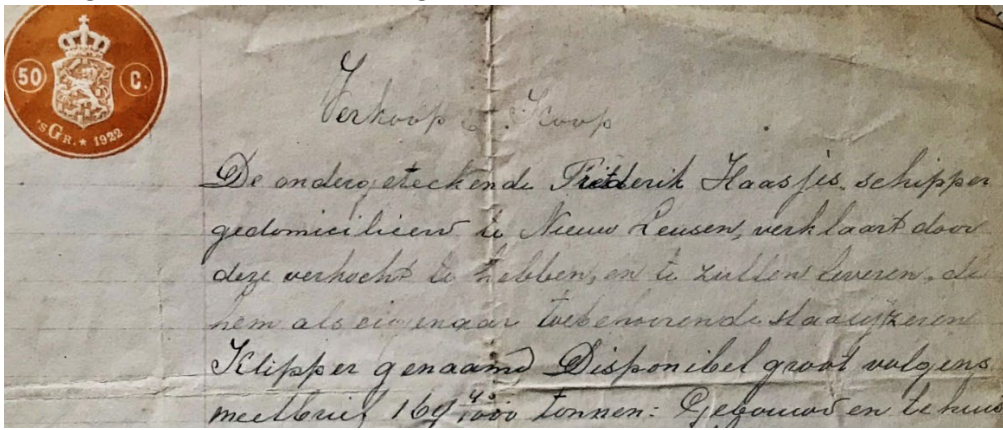 50 C.
'sGR.★ 1922
Verkoop & Koop
De ondergeteekende Frederik Haasjes, schipper
gedomicilieerd te Nieuw Leusen, verklaart door
deze verkocht te hebben, en te zullen leveren, de
hem als eigenaar toebehoorende staalijzeren
Klipper genaamd Disponibel groot volgens
meetbrief 169 tonnen: Gebouwd en te huis